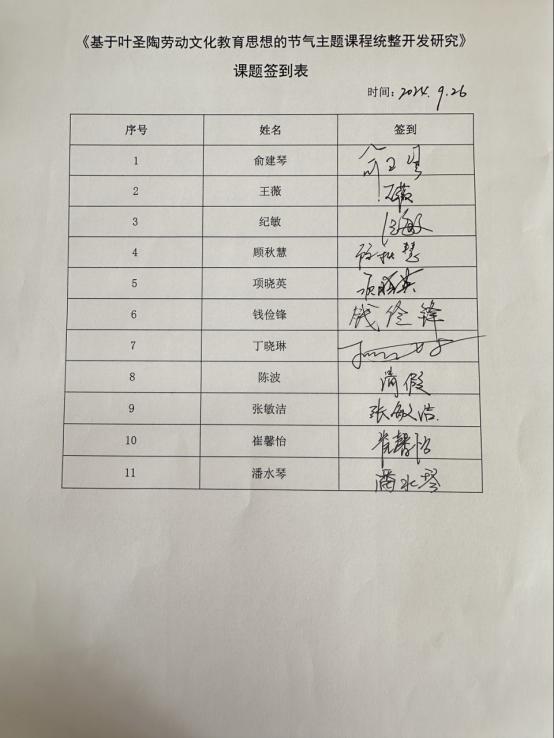 《基于叶圣陶劳动文化教育思想的节气主题课程统整开发研究》
课题签到表
时间：2024.9.26
序号 姓名 签到
1 俞建琴
2 王薇 王薇
3 纪敏 纪敏
4 顾秋慧 顾秋慧
5 项晓英 项晓英
6 钱俭锋 钱俭锋
7 丁晓琳
8 陈波 请假
9 张敏洁 张敏洁
10 崔馨怡 崔馨怡
11 潘水琴 潘水琴